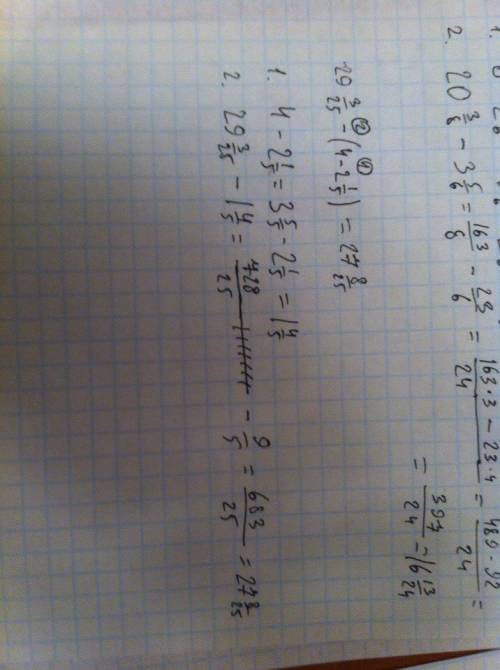 1.
2. 20 3/8 - 3 5/6 = 163/8 - 23/6 = (163·3 - 23·4)/24 = (489 - 92)/24 =
= 397/24 = 16 13/24
29 3/25 -② (4 -① 2 1/5) = 27 8/25
1. 4 - 2 1/5 = 3 5/5 - 2 1/5 = 1 4/5
2. 29 3/25 - 1 4/5 = 728/25 - 9/5 = 683/25 = 27 8/25